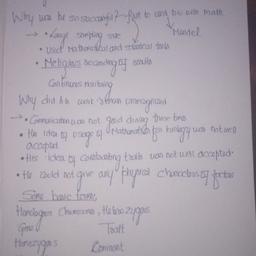 Why was he so successful? → first to work bio with math
→ • Large sampling size → Mandel
• Used Mathematical and statistical tools
• Meticulous recording of results
Continuous monitoring
Why did his work remain unrecognised
→ • Communication was not good during those time
• His idea of usage of Mathematics for biology was not well accepted
• His idea of contrasting traits was not well accepted.
• He could not give any physical characters of factors
Some basic terms;
Homologous Chromosome, Heterozygous
Gene Trait
Homozygous Dominant